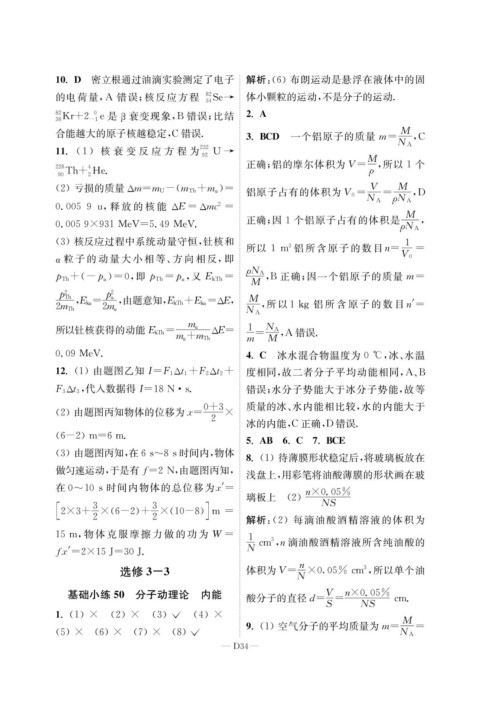 10. D　密立根通过油滴实验测定了电子
的电荷量,A 错误;核反应方程 ⁸²₃₄Se→
⁸²₃₆Kr+2 ⁰₋₁e 是 β 衰变现象,B 错误;比结
合能越大的原子核越稳定,C 错误.
11. (1) 核衰变反应方程为 ²³²₉₂U →
²²⁸₉₀Th+⁴₂He.
(2)亏损的质量 Δm=m_U-(m_Th+m_α)=
0.005 9 u,释放的核能 ΔE=Δmc²=
0.005 9×931 MeV=5.49 MeV.
(3)核反应过程中系统动量守恒,钍核和
α 粒子的动量大小相等、方向相反,即
p_Th+(-p_α)=0,即 p_Th=p_α,又 E_kTh=
p²_Th/2m_Th,E_kα=p²_α/2m_α,由题意知,E_kTh+E_kα=ΔE,
所以钍核获得的动能 E_kTh=m_α/(m_α+m_Th) ΔE=
0.09 MeV.
12. (1)由题图乙知 I=F₁Δt₁+F₂Δt₂+
F₃Δt₃,代入数据得 I=18 N·s.
(2)由题图丙知物体的位移为 x=(0+3)/2×
(6-2) m=6 m.
(3)由题图丙知,在 6 s~8 s 时间内,物体
做匀速运动,于是有 f=2 N,由题图丙知,
在 0~10 s 时间内物体的总位移为 x′=
[2×3+3/2×(6-2)+3/2×(10-8)] m =
15 m,物体克服摩擦力做的功为 W=
fx′=2×15 J=30 J.
选修 3-3
基础小练 50　分子动理论　内能
1. (1)×　(2)×　(3)√　(4)×
(5)×　(6)×　(7)×　(8)√
解析:(6)布朗运动是悬浮在液体中的固
体小颗粒的运动,不是分子的运动.
2. A
3. BCD　一个铝原子的质量 m=M/N_A,C
正确;铝的摩尔体积为 V=M/ρ,所以 1 个
铝原子占有的体积为 V₀=V/N_A=M/ρN_A,D
正确;因 1 个铝原子占有的体积是 M/ρN_A,
所以 1 m³ 铝所含原子的数目 n=1/V₀=
ρN_A/M,B 正确;因一个铝原子的质量 m=
M/N_A,所以 1 kg 铝所含原子的数目 n′=
1/m=N_A/M,A 错误.
4. C　冰水混合物温度为 0 ℃,冰、水温
度相同,故二者分子平均动能相同,A、B
错误;水分子势能大于冰分子势能,故等
质量的冰、水内能相比较,水的内能大于
冰的内能,C 正确,D 错误.
5. AB　6. C　7. BCE
8. (1)待薄膜形状稳定后,将玻璃板放在
浅盘上,用彩笔将油酸薄膜的形状画在玻
璃板上　(2) n×0.05%/NS
解析:(2)每滴油酸酒精溶液的体积为
1/N cm³,n 滴油酸酒精溶液所含纯油酸的
体积为 V=n/N×0.05% cm³,所以单个油
酸分子的直径 d=V/S=n×0.05%/NS cm.
9. (1)空气分子的平均质量为 m=M/N_A=
— D34 —